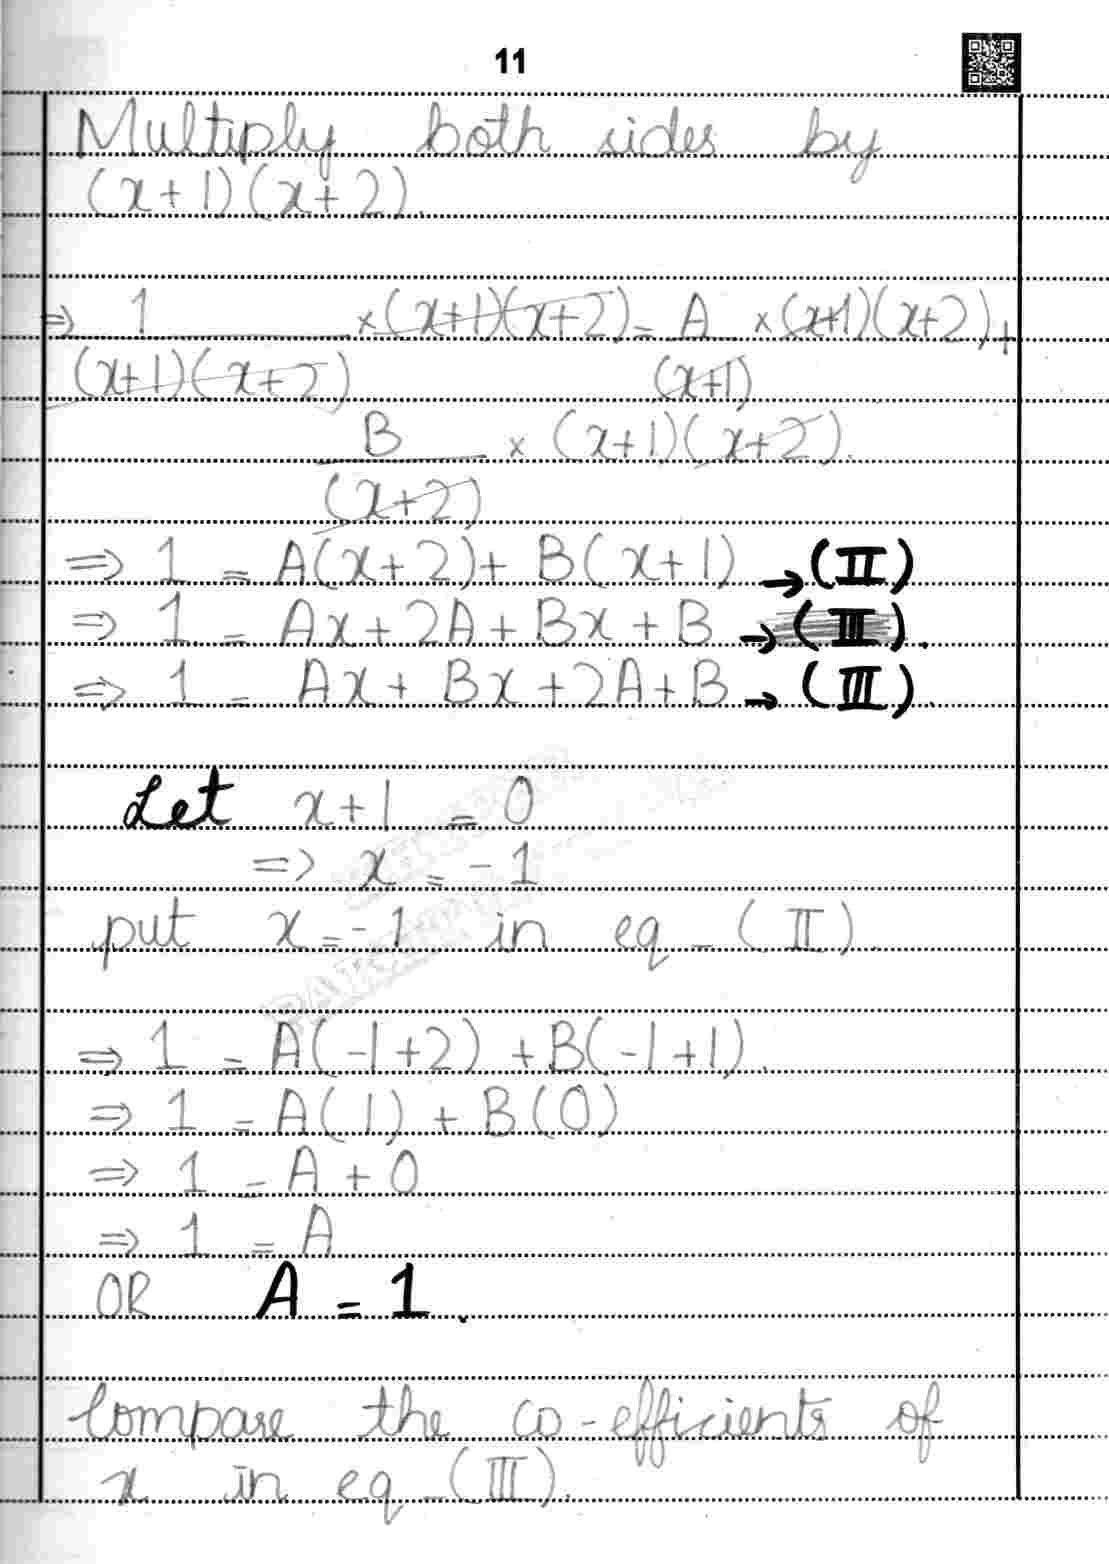 11
Multiply both sides by
(x+1)(x+2).
⇒ 1/((x+1)(x+2)) × (x+1)(x+2) = A/(x+1) × (x+1)(x+2) +
B/(x+2) × (x+1)(x+2).
⇒ 1 = A(x+2) + B(x+1) → (II)
⇒ 1 = Ax + 2A + Bx + B → (III).
⇒ 1 = Ax + Bx + 2A + B → (III).
Let x+1 = 0
⇒ x = -1
put x = -1 in eq - (II).
⇒ 1 = A(-1+2) + B(-1+1).
⇒ 1 = A(1) + B(0)
⇒ 1 = A + 0
⇒ 1 = A
OR A = 1.
Compare the co-efficients of
x in eq - (III).